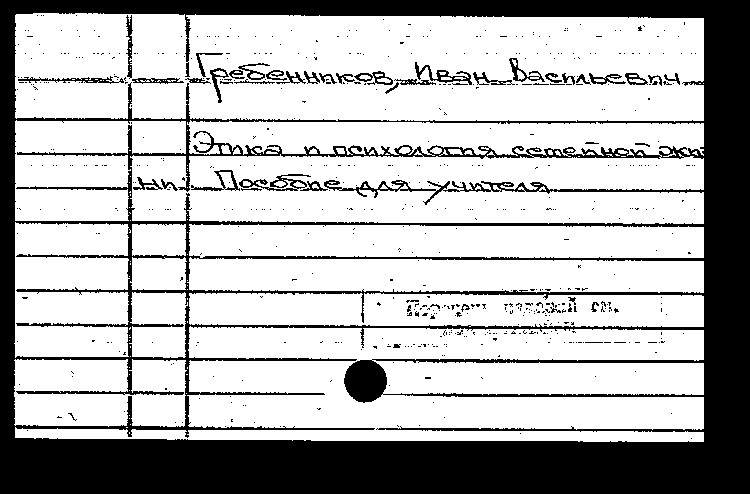 Гребенников, Иван Васильевич
Этика и психология семейной жиз
ни. Пособие для учителя
см.